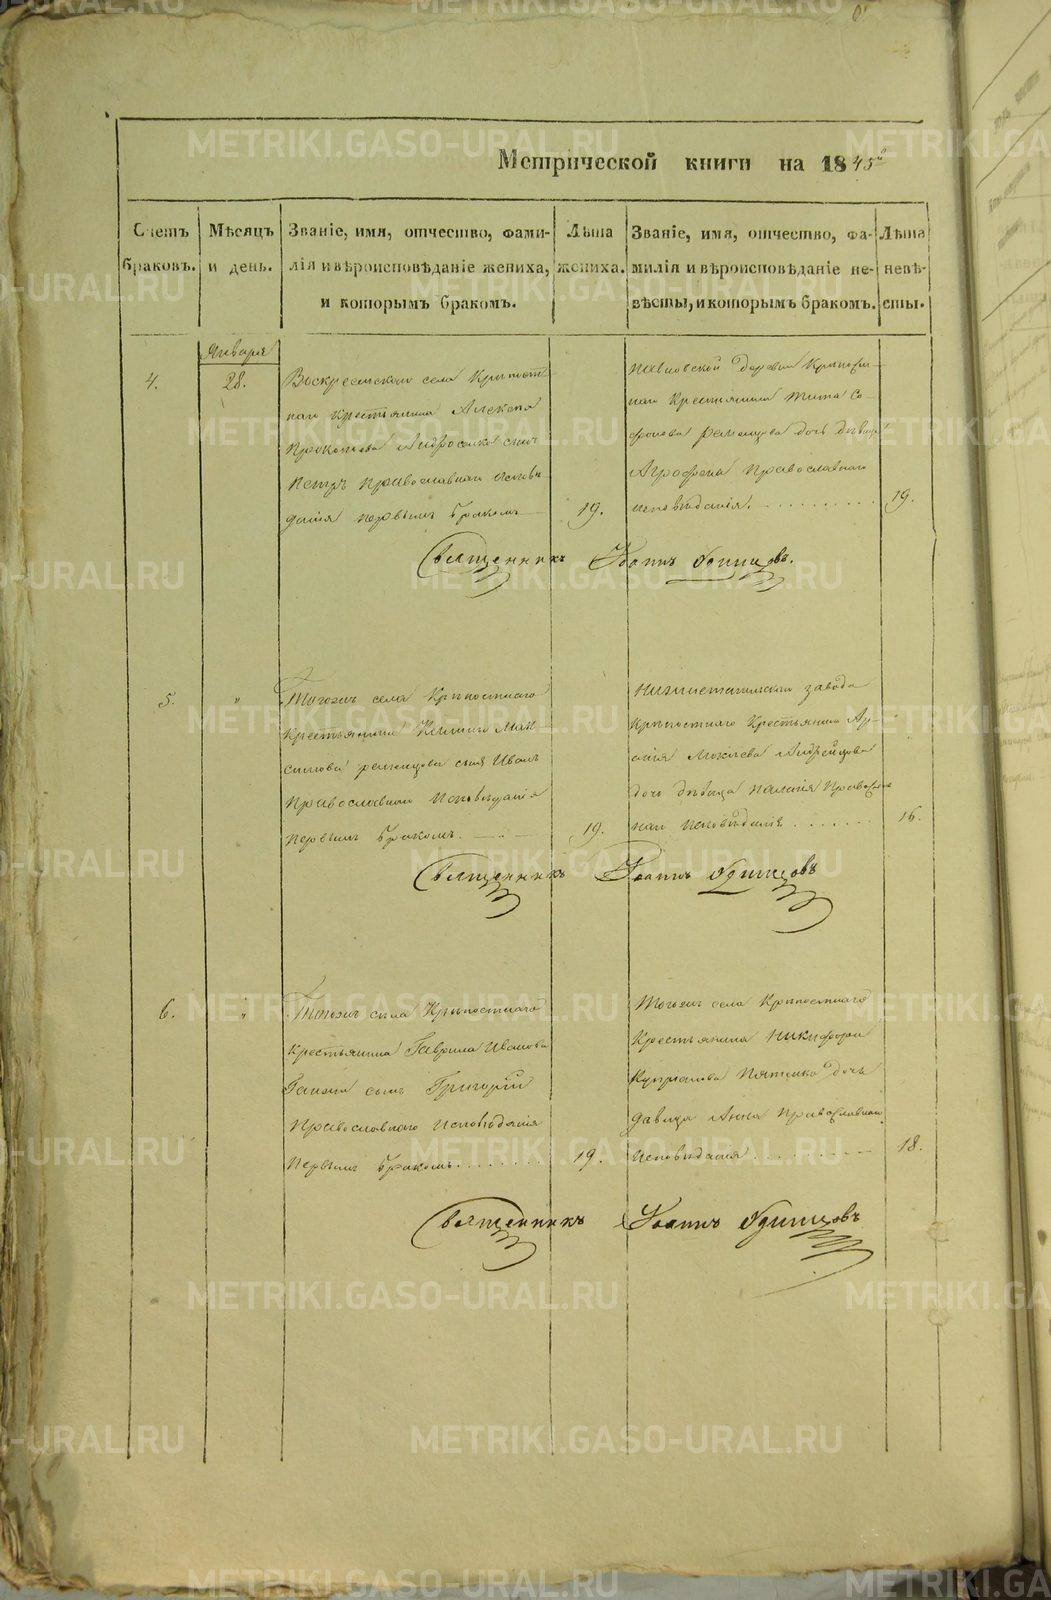 Метрической книги на 1845ᵈ
Счетъ браковъ.
Мѣсяцъ и день.
Званіе, имя, отчество, фами-
лія и вѣроисповѣданіе жениха,
и которымъ бракомъ.
Лѣта
жениха.
Званіе, имя, отчество, фа-
милія и вѣроисповѣданіе не-
вѣсты, и которымъ бракомъ.
Лѣта
невѣ-
сты.
Января
4.
28.
Воскресенскаго села Крѣпост
наго Крестьянина Алексѣя
Прокопьева сынъ
Петръ Православнаго Исповѣ
данія первымъ бракомъ
19.
деревни Крѣпост-
наго Крестьянина Тита Со-
фонова Ременцова дочь дѣвица
Агрофена Православнаго
исповѣданія.
19.
Священникъ Іоаннъ Одинцовъ.
5.
"
Тогожъ села Крѣпостнаго
Крестьянина Мак-
симова ременцова сынъ Иванъ
Православнаго Исповѣданія
Первымъ бракомъ.
19.
Нижнетагильскаго завода
Крѣпостнаго Крестьянина
Андрейцова
дочь дѣвица Православ
наго Исповѣданія
16.
Священникъ Іоаннъ Одинцовъ
6.
"
Тогожъ села Крѣпостнаго
Крестьянина Гаврила Иванова
сынъ Григорій
Православнаго Исповѣданія
Первымъ бракомъ
19.
Тогожъ села Крѣпостнаго
Крестьянина Никифора
дочь
дѣвица Анна Православнаго
Исповѣданія
18.
Священникъ Іоаннъ Одинцовъ
METRIKI.GASO-URAL.RU